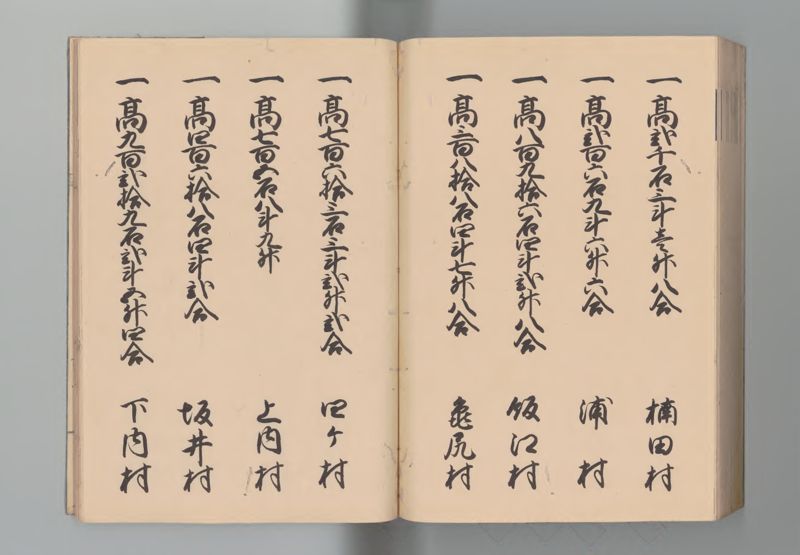 一高弐千石三斗壱升八合 楠田村
一高弐百六石九斗六升六合 浦村
一高八百九拾六石四斗弐升八合 飯江村
一高三百八拾八石四斗七升八合 亀尻村
一高七百六拾三石三斗弐升弐合 四ヶ村
一高七百五石八斗九升 上内村
一高四百六拾八石四斗弐合 坂井村
一高九百弐拾九石弐斗五升四合 下内村